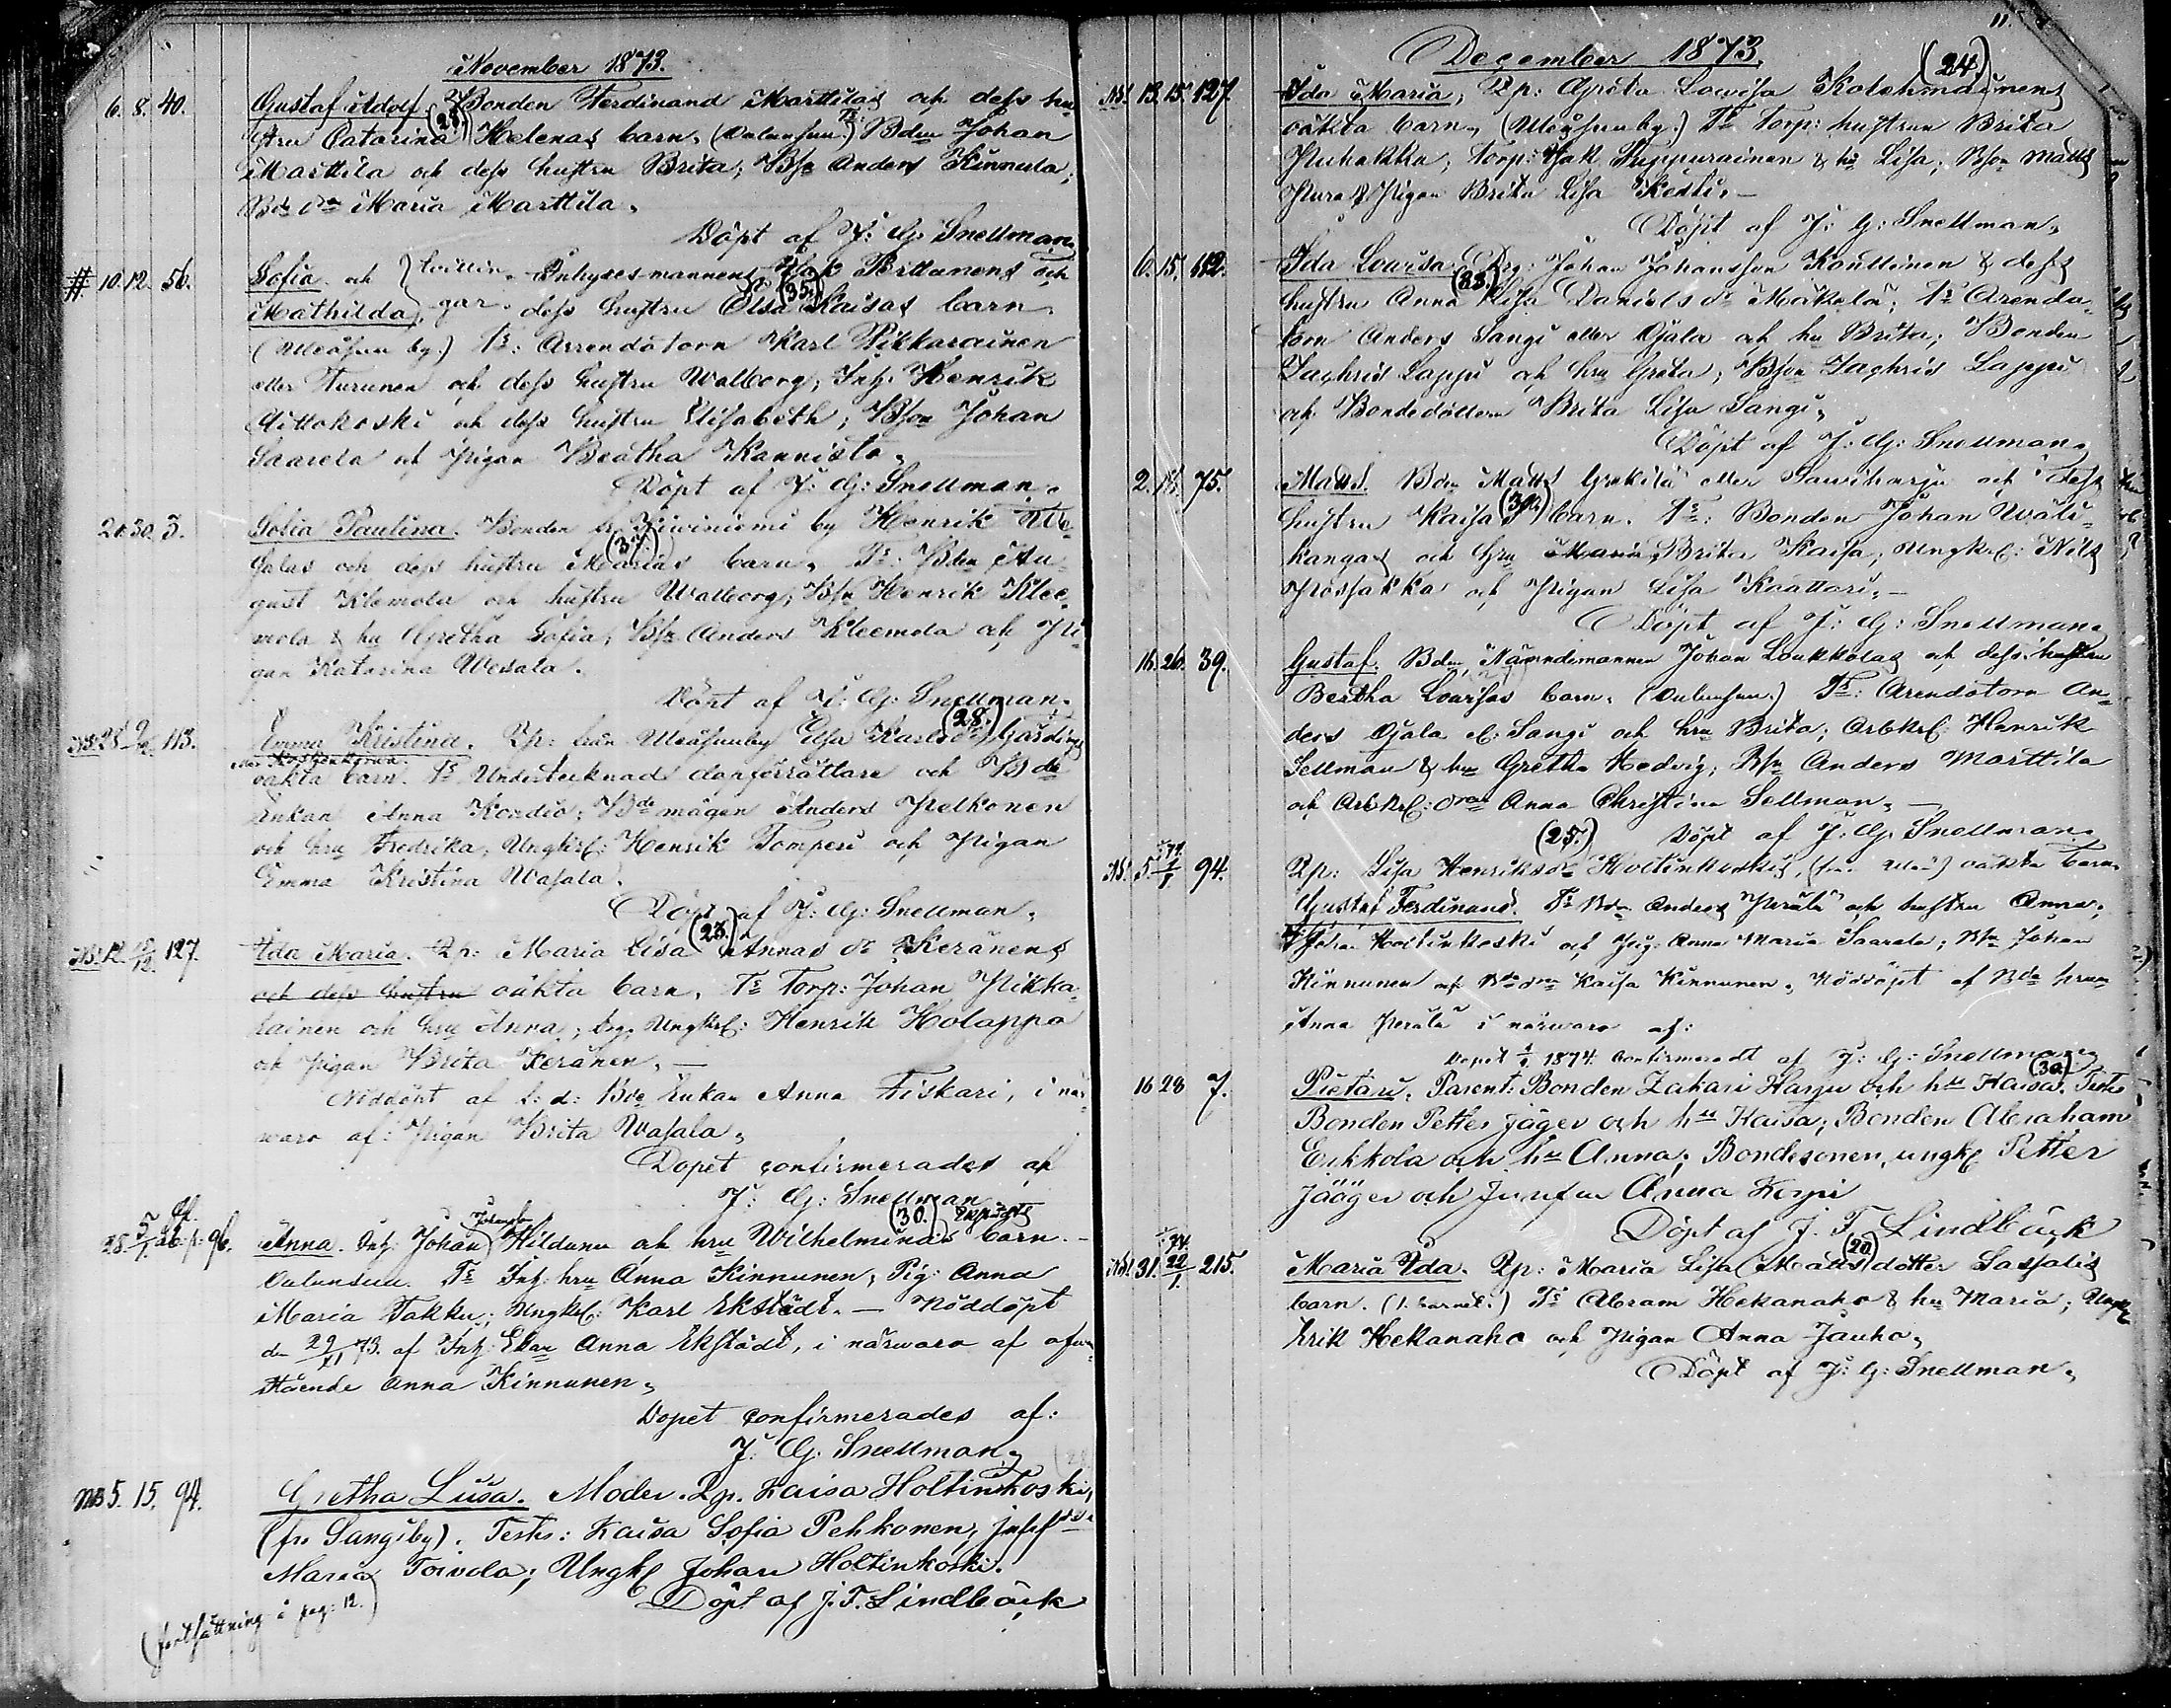 November 1873.
6. 8. 40. Gustaf Adolf. Bonden Ferdinand Marttilas och dess hu
stru Catarina (28.) Helenas barn. (Oulunsuu) Ts: Bden Johan
Marttila och dess hustru Brita; Bsn Anders Kinnula;
Bde dr Maria Marttila.
Döpt af J: G: Snellman.
# 10. 12. 56. Sofia och } tvillin- Inhysesmannens Isak Pertunens och
Mathilda, gar. dess hustru Elsa (35.) Kaisas barn.
(Uleåsuu by.) Ts: Arrendatorn Karl Pikkarainen
eller Turunen och dess hustru Walborg; Inh: Henrik
Aittokoski och dess hustru Elisabeth; Bson Johan
Saarela och Pigan Beatha Kannisto.
Döpt af J: G: Snellman.
20. 30. 3. Sofia Paulina. Bonden fr. Kiwiniemi by Henrik
och dess hustru Marias (37.) barn. Ts: Bden Au-
gust Klemola och hustru Walborg; Bsn Henrik Klee-
mola & hu Gretha Sofia; Bsn Anders Kleemola och Pi-
gan Katarina Wesala.
Döpt af J: G: Snellman.
NB. 28. 113. Emma Kristina. Qp: från Uleåsuuby Elsa Karlsdr (28.) Gardings
oäkta barn. Ts Undertecknad dopförrättare och Bde
Enkan Anna Kordio; Bde mågen Anders Pelkonen
och hru Fredrika; Ungkrl: Henrik Tomperi och Pigan
Emma Kristina Wasala.
Döpt af J: G: Snellman.
NB. 12. 127. Ida Maria. Qp: Maria Lisa (23.) Annas dr Keränens
och dess hustru oäkta barn. Ts Torp: Johan Pikka-
rainen och hru Anna; Ungkrl: Henrik Holappa
och Pigan Brita Keränen. —
Nöddöpt af Bde Enkan Anna Fiskari, i när-
waro af: Pigan Brita Wasala.
Dopet confirmerades af
J: G: Snellman
28. 5/1. 96. Anna. Inh: Johan Hildunn och hru Wilhelminas (30.) barn. —
Oulunsuu. Ts Inh: hru Anna Kinnunen; Pig: Anna
Maria Takku; Ungkrl: Karl Ekstädt. — Nöddöpt
den 29/XI 73. af Inh: Ekan Anna Ekstädt, i närwaro af ofwan-
stående Anna Kinnunen.
Dopet confirmerades af:
J: G: Snellman.
NB 5. 15. 94. Gretha Lisa. Moder. Qp. Kaisa Holtinkoski,
(fr. Sangiby). Testes: Kaisa Sofia Pehkonen,
Maria Toivola; Ungk Johan Holtinkoski.
Döpt af J. F. Lindbäck
(fortsättning å pag: 12.)
11.
December 1873.
NB. 13. 15. 127. Ida Maria, Qp: Greta Lowisa Kolehmainens (24.)
oäkta barn. (Uleåsuuby.) Ts Torp: hustrun Brita
Puhakka; Torp: Isak Tuppurainen & hu Lisa; Bson Matts
Pura & Pigan Brita Lisa Kestii. —
Döpt af J: G: Snellman.
6. 15. 112. Ida Lovisa. Drg: Johan Johansson Konttinen & dess
hustru Anna (23.) Lisa Daniels dr Mäkelä; Ts Arenda-
torn Anders Sangi eller Ojala och hu Brita; Bonden
Zachris Lappi och hru Greta; Bson Zachris Lappi
och Bondedottern Brita Lisa Sangi.
Döpt af J: G: Snellman.
2. 18. 75. Matts. Bden Matts eller Sawiharju och dess
hustru Kaisas (39.) barn. Ts: Bonden Johan Wäli-
kangas och hru Maria Brita Kaisa; Ungkrl: Nils
Possakka och Pigan Lisa Käattari. —
Döpt af J: G: Snellman.
16. 26. 39. Gustaf. Bden, Nämndemannen Johan Loukkolas och dess hustru
Beatha Lowisas barn. (Oulunsuu.) Ts: Arendatorn An-
ders Ojala el: Sangi och hru Brita; Arbkrl: Henrik
Sellman & hru Gretha Hedvig; Bsn Anders Marttila
och Arbkrl: dren Anna Christina Sellman. —
Döpt af J: G: Snellman.
NB. 5. 94. Qp: Lisa Henriksdr (25.) Holtinkoskis, oäkta barn
Gustaf Ferdinand. Ts Bden Anders Perälä och hustru Anna;
Johan Holtinkoski och Pig: Anna Maria Saarela; Bsn Johan
Kinnunen och Bde dren Kaisa Kinnunen. Nöddöpt af Bde hrun
Anna Perälä i närwaro af:
Dopet 1874. confirmeradt af J: G: Snellman
16 28 7. Pietari. Parent: Bonden Zakari Harju och hu Kaisa. (30) Testes
Bonden Petter Jäger och hu Kaisa; Bonden Abraham
Erkkola och hu Anna; Bondesonen, ungk Petter
Jääger och Jungfru Anna Korpi
Döpt af J. F. Lindbäck
NB. 31. 22/1. 74. 215. Maria Ida. Qp: Maria Lisa (20.) Matts dotter Sassalis
barn. (1. barnet.) Ts Abram Hekanaho & hu Maria; Ungk
Erik Hekanaho och Pigan Anna Jauho.
Döpt af J: G: Snellman.